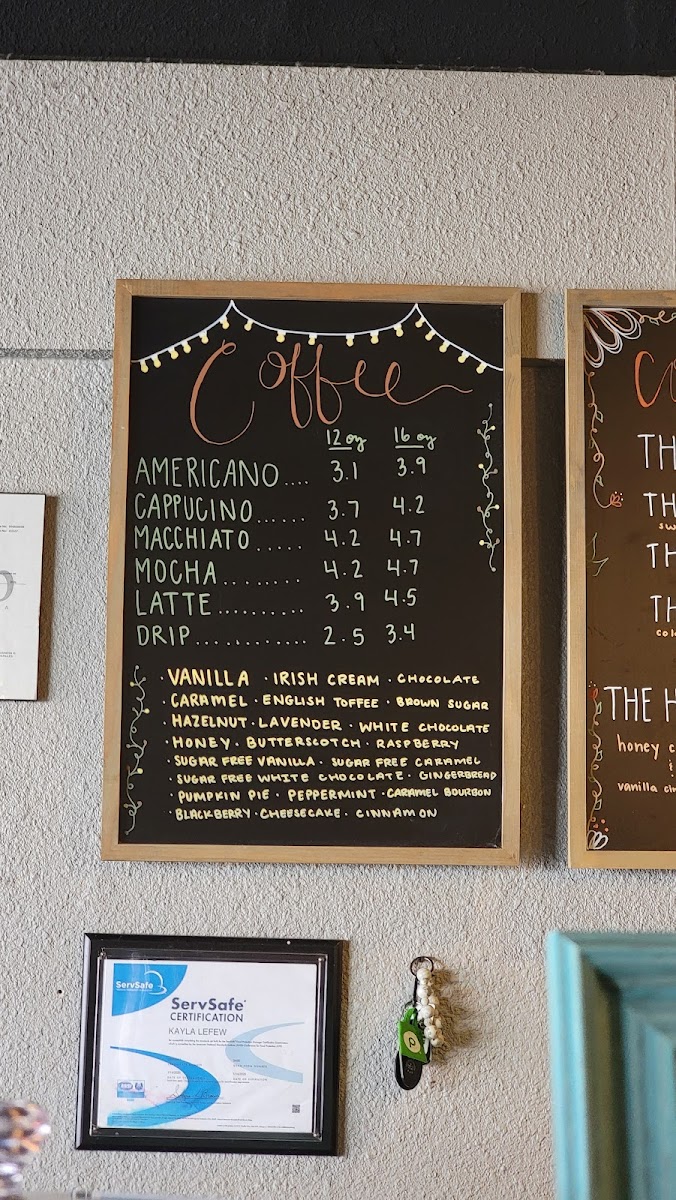 Coffee
12 oz 16 oz
AMERICANO.... 3.1 3.9
CAPPUCINO...... 3.7 4.2
MACCHIATO ..... 4.2 4.7
MOCHA......... 4.2 4.7
LATTE.......... 3.9 4.5
DRIP............. 2.5 3.4
· VANILLA · IRISH CREAM · CHOCOLATE
· CARAMEL · ENGLISH TOFFEE · BROWN SUGAR
· HAZELNUT · LAVENDER · WHITE CHOCOLATE
· HONEY · BUTTERSCOTCH · RASPBERRY
· SUGAR FREE VANILLA · SUGAR FREE CARAMEL
· SUGAR FREE WHITE CHOCOLATE · GINGERBREAD
· PUMPKIN PIE · PEPPERMINT · CARAMEL BOURBON
· BLACKBERRY · CHEESECAKE · CINNAMON
TH
TH
TH
TH
THE H
honey c
vanilla
ServSafe
ServSafe®
CERTIFICATION
KAYLA LEFEW